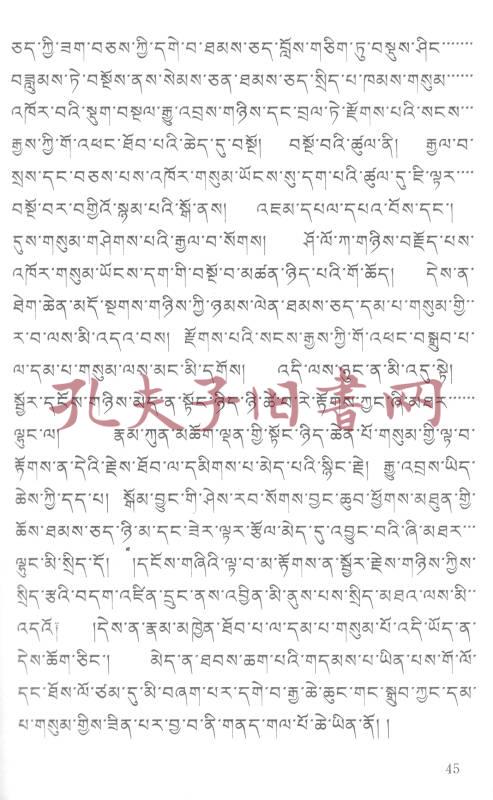 ཅད་ཀྱི་ཟག་བཅས་ཀྱི་དགེ་བ་ཐམས་ཅད་བློས་གཅིག་ཏུ་བསྡུས་ཤིང་……
བཟླུམས་ཏེ་བསྔོས་ནས་སེམས་ཅན་ཐམས་ཅད་སྲིད་པ་ཁམས་གསུམ་……
འཁོར་བའི་སྡུག་བསྔལ་རྒྱུ་འབྲས་གཉིས་དང་བྲལ་ཏེ་རྫོགས་པའི་སངས་…
རྒྱས་ཀྱི་གོ་འཕང་ཐོབ་པའི་ཆེད་དུ་བསྔོ། བསྔོ་བའི་ཚུལ་ནི། རྒྱལ་བ་
སྲས་དང་བཅས་པས་འཁོར་གསུམ་ཡོངས་སུ་དག་པའི་ཚུལ་དུ་ཇི་ལྟར་…
བསྔོ་བར་བགྱིའོ་སྙམ་པའི་སྒོ་ནས། འཇམ་དཔལ་དཔའ་བོས་དང་།
དུས་གསུམ་གཤེགས་པའི་རྒྱལ་བ་སོགས། ཤོ་ལོ་ཀ་གཉིས་བརྗོད་པས་
འཁོར་གསུམ་ཡོངས་དག་གི་བསྔོ་བ་མཚན་ཉིད་པའི་གོ་ཆོད། དེས་ན་
ཐེག་ཆེན་མདོ་སྔགས་གཉིས་ཀྱི་ཉམས་ལེན་ཐམས་ཅད་དམ་པ་གསུམ་གྱི་
ར་བ་ལས་མི་འདའ་བས། རྫོགས་པའི་སངས་རྒྱས་ཀྱི་གོ་འཕང་བསྒྲུབ་པ་
ལ་དམ་པ་གསུམ་ལས་མང་མི་དགོས། འདི་ལས་ཉུང་ན་མི་འདུ་སྟེ།
སྦྱོར་དངོས་གཉིས་མེད་ན་སྟོང་ཉིད་ཉི་ཚེ་བ་རེ་རྟོགས་ཀྱང་ཞི་མཐར་……
ལྷུང་ལ། རྣམ་ཀུན་མཆོག་ལྡན་གྱི་སྟོང་ཉིད་ཆེན་པོ་གསུམ་གྱི་ལྟ་བ་
རྟོགས་ན་དེའི་རྗེས་ཐོབ་ལ་དམིགས་པ་མེད་པའི་སྙིང་རྗེ། རྒྱུ་འབྲས་ཡིད་
ཆེས་ཀྱི་དད་པ། སྒོམ་བྱུང་གི་ཤེས་རབ་སོགས་བྱང་ཆུབ་ཕྱོགས་མཐུན་གྱི་
ཆོས་ཐམས་ཅད་ཉི་མ་དང་ཟེར་ལྟར་རྩོལ་མེད་དུ་འབྱུང་བའི་ཞི་མཐར་…
ལྷུང་མི་སྲིད་དོ། །དངོས་གཞིའི་ལྟ་བ་མ་རྟོགས་ན་སྦྱོར་རྗེས་གཉིས་ཀྱིས་
སྲིད་རྩའི་བདག་འཛིན་དྲུང་ནས་འབྱིན་མི་ནུས་པས་སྲིད་མཐའ་ལས་མི་
འདའོ། །དེས་ན་རྣམ་མཁྱེན་ཐོབ་པ་ལ་དམ་པ་གསུམ་པོ་འདི་ཡོད་ན་
དེས་ཆོག་ཅིང་། མེད་ན་ཐབས་ཆག་པའི་གདམས་པ་ཡིན་པས་གོ་ལོ་
དང་ཐོས་ལོ་ཙམ་དུ་མི་བཞག་པར་དགེ་བ་རྒྱ་ཆེ་ཆུང་གང་སྒྲུབ་ཀྱང་དམ་
པ་གསུམ་གྱིས་ཟིན་པར་བྱ་བ་ནི་གནད་གལ་པོ་ཆེ་ཡིན་ནོ། །
孔夫子旧书网
45